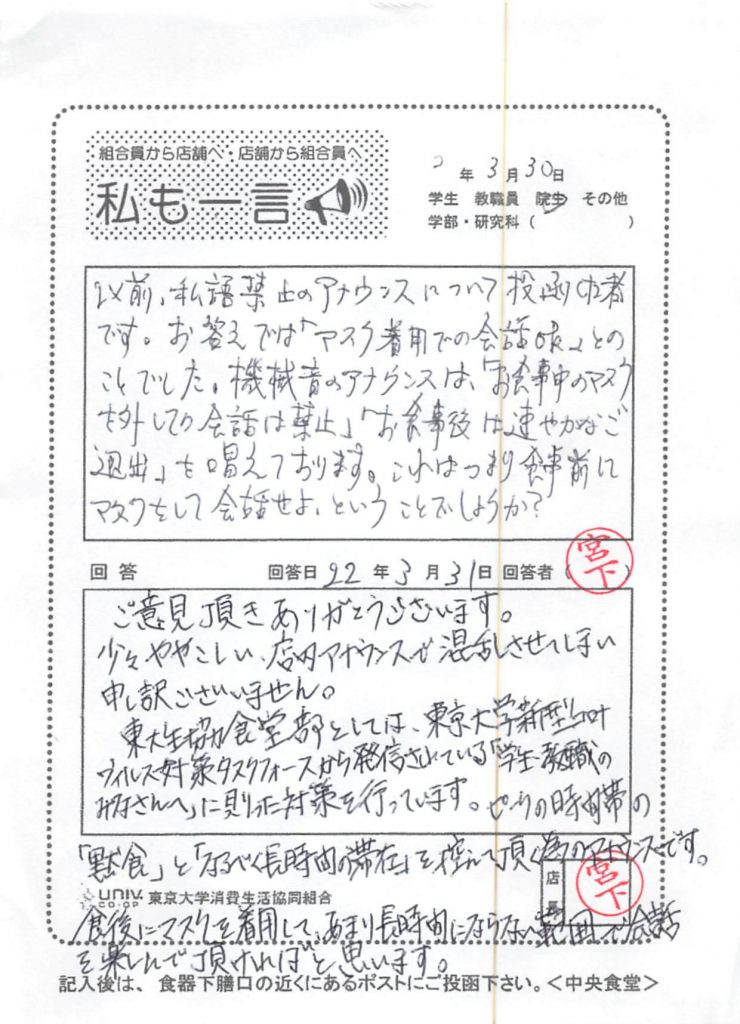 組合員から店舗へ・店舗から組合員へ
私も一言
年 3月30日
学生 教職員 院生 その他
学部・研究科（　　　　）
以前、私語禁止のアナウンスについて投函した者
です。お答えでは「マスク着用での会話OK」との
ことでした。機械音のアナウンスは、「お食事中のマスク
を外しての会話は禁止」「お食事後は速やかなご
退出」を唱えております。これはつまり食事前に
マスクをして会話せよ、ということでしょうか？
回答 回答日 22年3月31日 回答者（宮下）
ご意見頂きありがとうございます。
少々ややこしい、店内アナウンスで混乱させてしまい
申し訳ございません。
東大生協食堂部としては、東京大学新型コロナ
ウィルス対策タスクフォースから発信されている「学生・教職の
みなさんへ」に則った対策を行っています。ピークの時間帯の
「黙食」と「なるべく長時間の滞在」を控えて頂く為のアナウンスです。
店長 宮下
UNIV. CO-OP 東京大学消費生活協同組合
食後にマスクを着用して、あまり長時間にならない範囲で会話
を楽しんで頂ければと思います。
記入後は、食器下膳口の近くにあるポストにご投函下さい。＜中央食堂＞